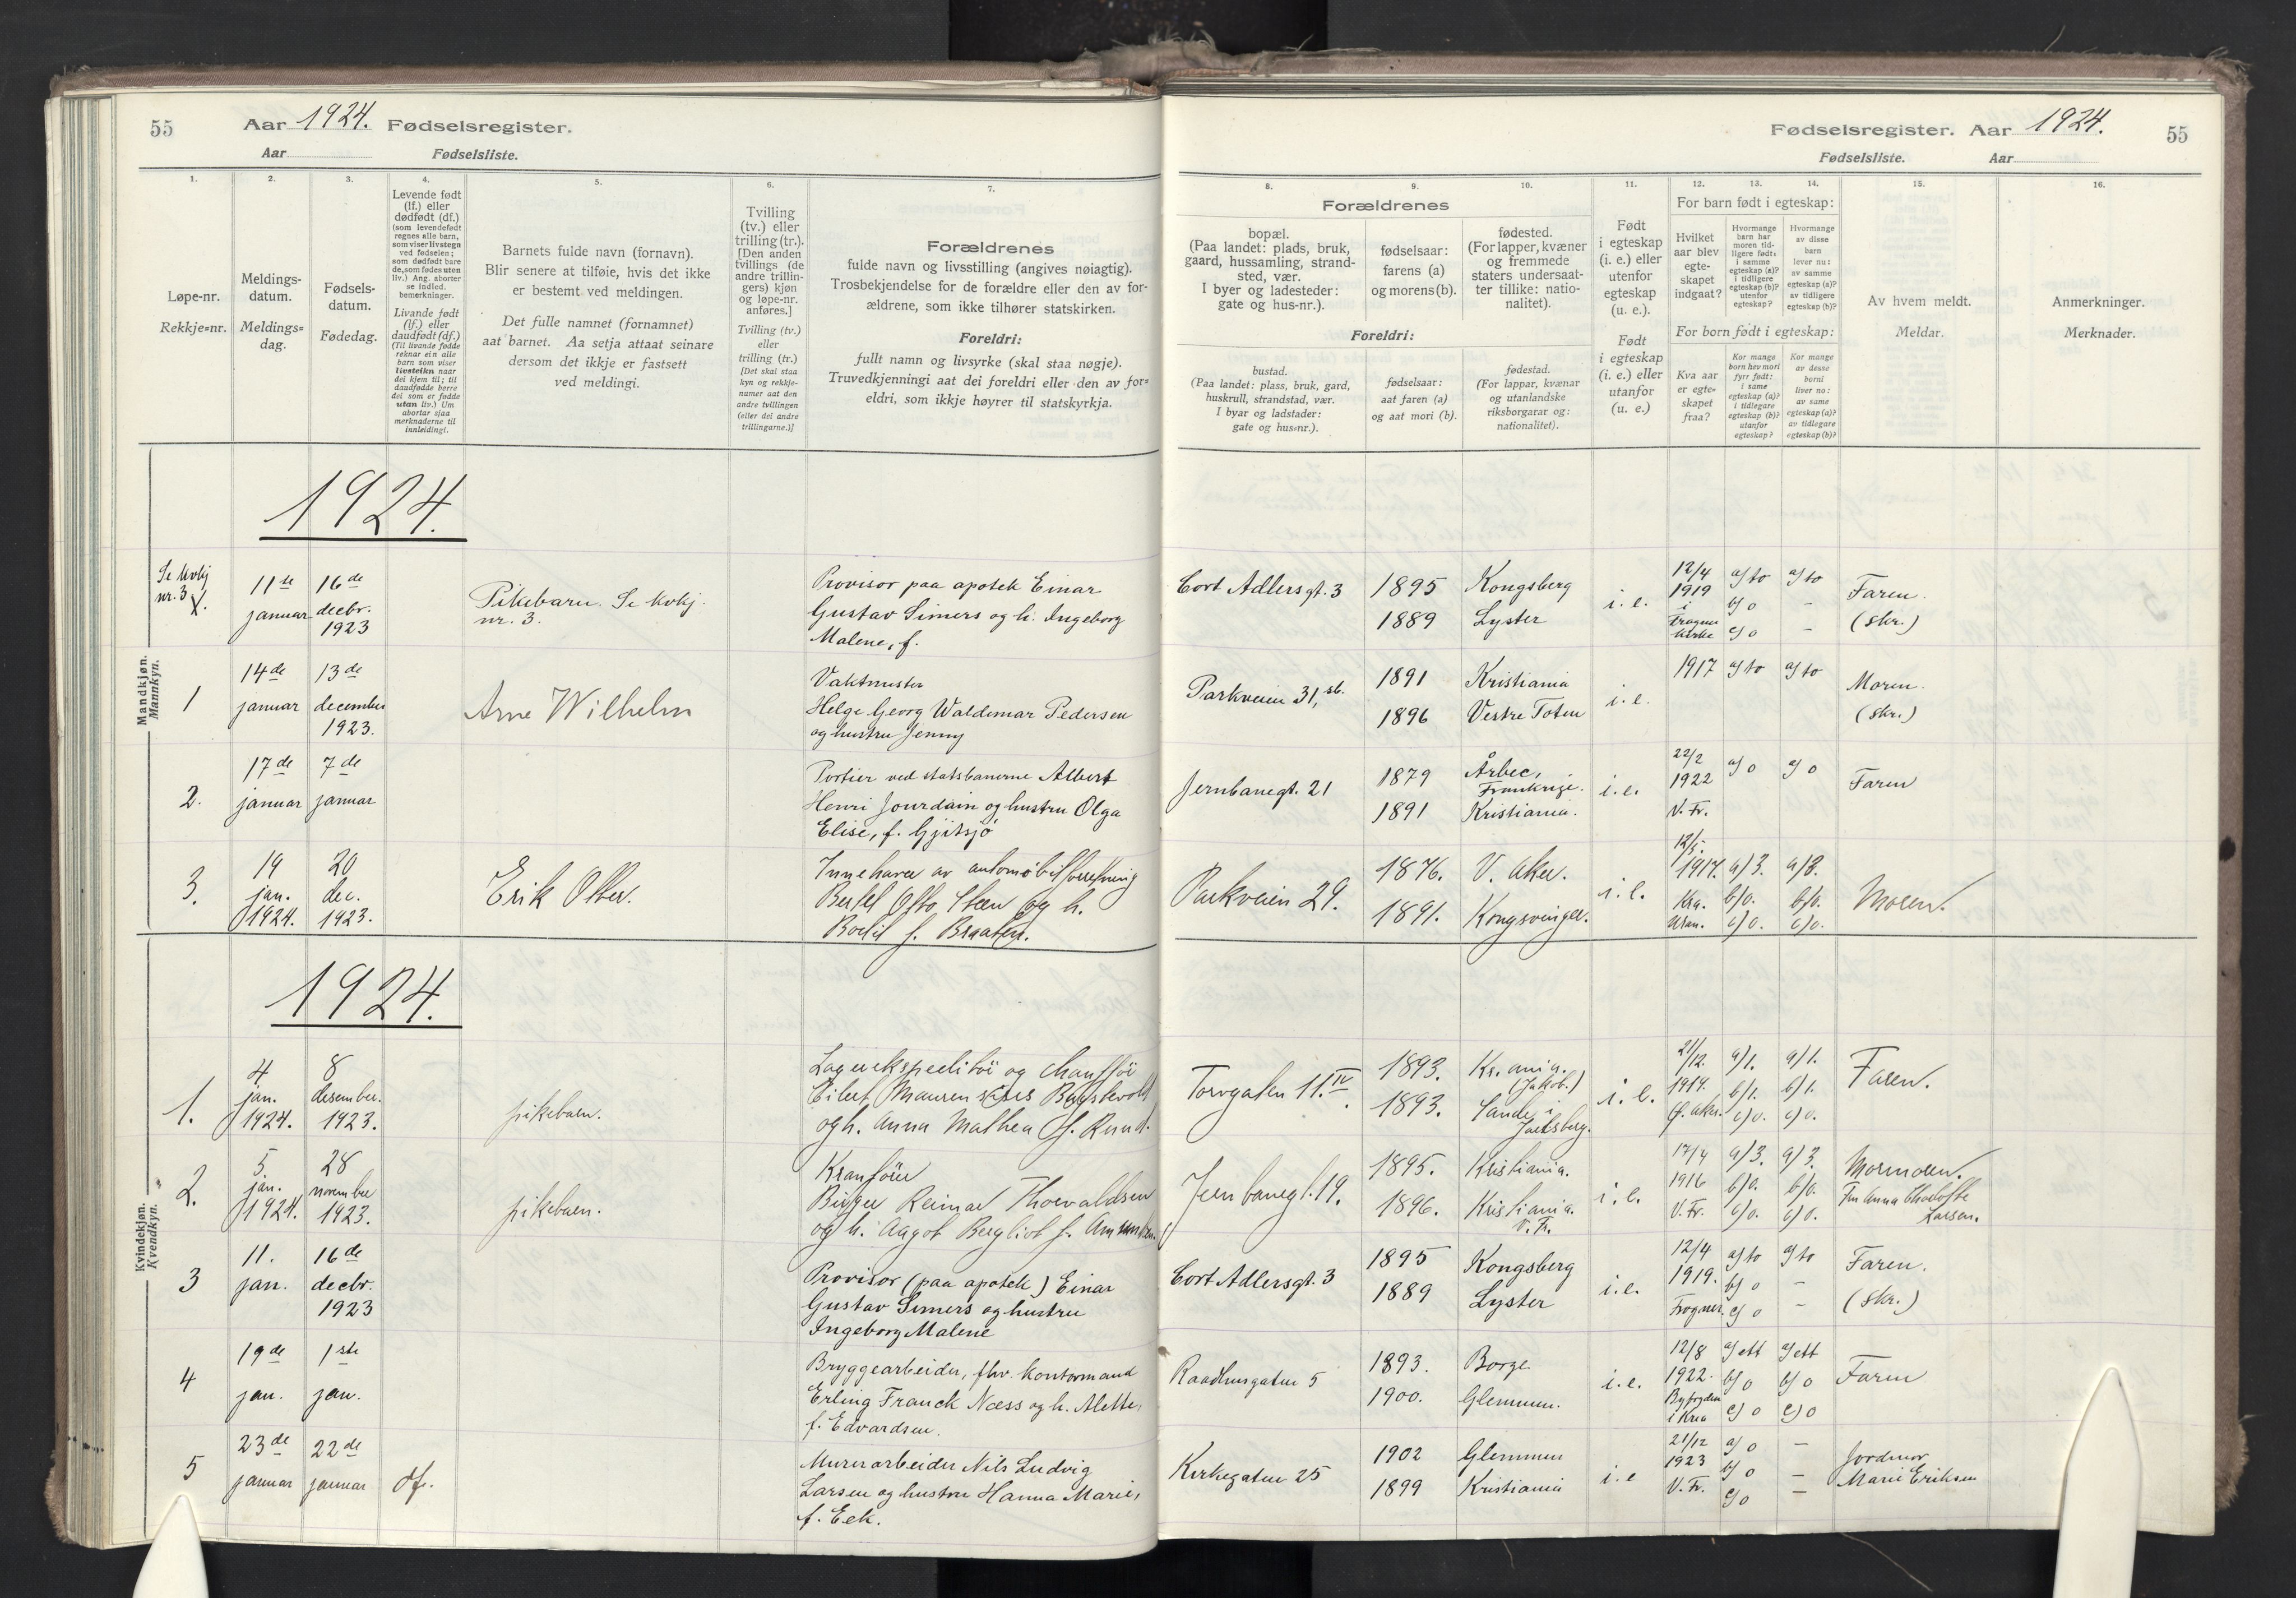 55 Aar 1924. Fødselsregister.
Aar Fødselsliste.
Fødselsregister. Aar 1924. 55
Fødselsliste. Aar
1.
Løpe-nr.
Rekkje=nr.
2.
Meldings-
datum.
Meldings=
dag.
3.
Fødsels-
datum.
Fødedag.
4.
Levende født
(lf.) eller
dødfødt (df.)
(som levendefødt
regnes alle barn,
som viser livstegn
ved fødselen;
som dødfødt bare
de, som fødes uten
liv.) Ang. aborter
se indled.
bemerkninger.
Livande født
(lf.) eller
daudfødt (df.)
(Til livande fødde
reknar ein alle
barn som viser
livsteikn naar
dei kjem til; til
daudfødde berre
dei som er fødde
utan liv.) Um
abortar sjaa
merknaderne til
innleidingi.
5.
Barnets fulde navn (fornavn).
Blir senere at tilføie, hvis det ikke
er bestemt ved meldingen.
Det fulle namnet (fornamnet)
aat barnet. Aa setja attaat seinare
dersom det ikkje er fastsett
ved meldingi.
6.
Tvilling
(tv.) eller
trilling (tr.).
[Den anden
tvillings (de
andre trillin-
gers) kjøn
og løpe-nr.
anføres.]
Tvilling (tv.)
eller
trilling (tr.)
[Det skal staa
kyn og rekkje-
numer aat den
andre tvillingen
(eller dei andre
trillingarne.)]
7.
Forældrenes
fulde navn og livsstilling (angives nøiagtig).
Trosbekjendelse for de forældre eller den av for-
ældrene, som ikke tilhører statskirken.
Foreldri:
fullt namn og livsyrke (skal staa nøgje).
Truvedkjenningi aat dei foreldri eller den av for=
eldri, som ikkje høyrer til statskyrkja.
Forældrenes
8.
bopæl.
(Paa landet: plads, bruk,
gaard, hussamling, strand-
sted, vær.
I byer og ladesteder:
gate og hus-nr.).
9.
fødselsaar:
farens (a)
og morens (b).
10.
fødested.
(For lapper, kvæner
og fremmede
staters undersaat-
ter tillike: natio-
nalitet).
Foreldri:
bustad.
(Paa landet: plass, bruk, gard,
huskrull, strandstad, vær.
I byar og ladstader:
gate og hus=nr.).
fødselsaar:
aat faren (a)
og aat mori (b).
fødestad.
(For lappar, kvænar
og utanlandske
riksborgarar og:
nationalitet).
11.
Født
i egteskap
(i. e.) eller
utenfor
egteskap
(u. e.).
Født
i egteskap
(i. e.) eller
utanfor
(u. e.)
12. 13. 14.
For barn født i egteskap:
Hvilket
aar blev
egte-
skapet
indgaat?
Hvormange
barn har
moren tid-
ligere født:
i samme
egteskap (a)?
i tidligere
egteskap (b)?
utenfor
egteskap?
Hvormange
av disse
barn
lever nu:
av samme
egteskap (a)?
av tidligere
egteskap (b)?
For born født i egteskap:
Kva aar
er egte=
skapet
fraa?
Kor mange
born hev mori
fyrr født:
i same
egteskap (a)?
i tidlegare
egteskap (b)?
utanfor
egteskap?
Kor mange
av desse
borni
liver no:
av same
egteskap (a)?
av tidlegare
egteskap (b)?
15.
Av hvem meldt.
Meldar.
16.
Anmerkninger.
Merknader.
Mandkjøn.
Mannkyn.
1924.
Se kvkj
nr. 3
1.
11te
januar
16de
decbr.
1923
Pikebarn. Se kvkj.
nr. 3.
Provisor paa apotek Einar
Gustav Simers og h. Ingeborg
Malene, f.
Cort Adlersgt. 3
1895
1889
Kongsberg
Lyster
i. e.
12/4
1919
i
Frogner
kirke
a/ to
b/ 0
c/ 0
a/ to
-
-
Faren.
(skr.)
1
14de
januar
13de
december
1923.
Arne Wilhelm
Vaktmester
Helge Georg Waldemar Pedersen
og hustru Jenny
Parkveien 31, st.
1891
1896
Kristiania
Vestre Toten
i. e.
1917
a/ to
a/ to
Moren.
(skr.)
2.
17de
januar
7de
januar
Portier ved statsbanerne Albert
Henri Jourdain og hustru Olga
Elise, f. Gjitsjö
Jernbanegt. 21
1879
1891
Årbec,
Frankrige.
Kristiania.
i. e.
22/2
1922
V. Fr.
a/ 0
a/ 0
Faren
3.
19
jan.
1924.
20
dec.
1923.
Erik Otter.
Innehaver av automobilforretning
Bertel Otto Steen og h.
Bodil f. Braaten.
Parkveien 29.
1876.
1891.
V. Aker.
Kongsvinger.
i. e.
12/5.
1917.
Kra.
a/ 3.
b/ 0.
c/ 0.
a/ 3.
b/ 0.
c/ 0.
Moren.
Kvindekjøn.
Kvendkyn.
1924.
1.
4
jan.
1924.
8
desember.
1923.
pikebarn.
Lagerekspeditör og chaufför
Eilert Bergstevold
og h. Anna Mathea f. Ruud.
Torvgaten 11. IV.
1893.
1893.
Kr.ania.
(Jakob.)
Sande i
Jarlsberg.
i. e.
21/12.
1914.
Ø. Aker.
a/ 1.
b/ 1.
c/ 0.
a/ 1.
b/ 1.
c/ 0.
Faren.
2.
5.
jan.
1924.
28
november
1923.
pikebarn.
Kranförer
Birger Reimar Thorvaldsen
og h. Aagot Bergliot f. Amundsen.
Jernbanegt. 19.
1895.
1896.
Kristiania.
Kristiania.
V. Fr.
i. e.
17/4
1916
V. Fr.
a/ 3.
b/ 0.
c/ 0.
a/ 3.
b/ 0.
c/ 0.
Mormoren.
Fru Anna Charlotte
Larsen.
3
11.
jan.
16de
decbr.
1923
Provisor (paa apotek) Einar
Gustav Simers og hustru
Ingeborg Malene
Cort Adlersgt. 3
1895
1889
Kongsberg
Lyster
i. e.
12/4
1919.
Frogner.
a/ to
b/ 0
c/ 0
a/ to
-
-
Faren.
(skr.)
4
19de
jan.
1ste
jan.
Bryggearbeider, fhv. kontormand
Erling Franck Næss og h. Alette,
f. Edvardsen.
Raadhusgaten 5
1893.
1900.
Borge
Glemmen.
i. e.
12/8
1922.
Byfogden
i Kra
a/ ett
b/ 0
c/ 0
a/ ett
b/ 0
c/ 0
Faren
5
23de
januar
22de
januar
df.
Murerarbeider Nils Ludvig
Larsen og hustru Hanna Marie,
f. Eek.
Kirkegaten 25
1902
1899
Glemmen
Kristiania
i. e
21/12
1923
V. Fr.
a/ 0
b/ 0
c/ 0
-
-
-
Jordmor
Marie Eriksen